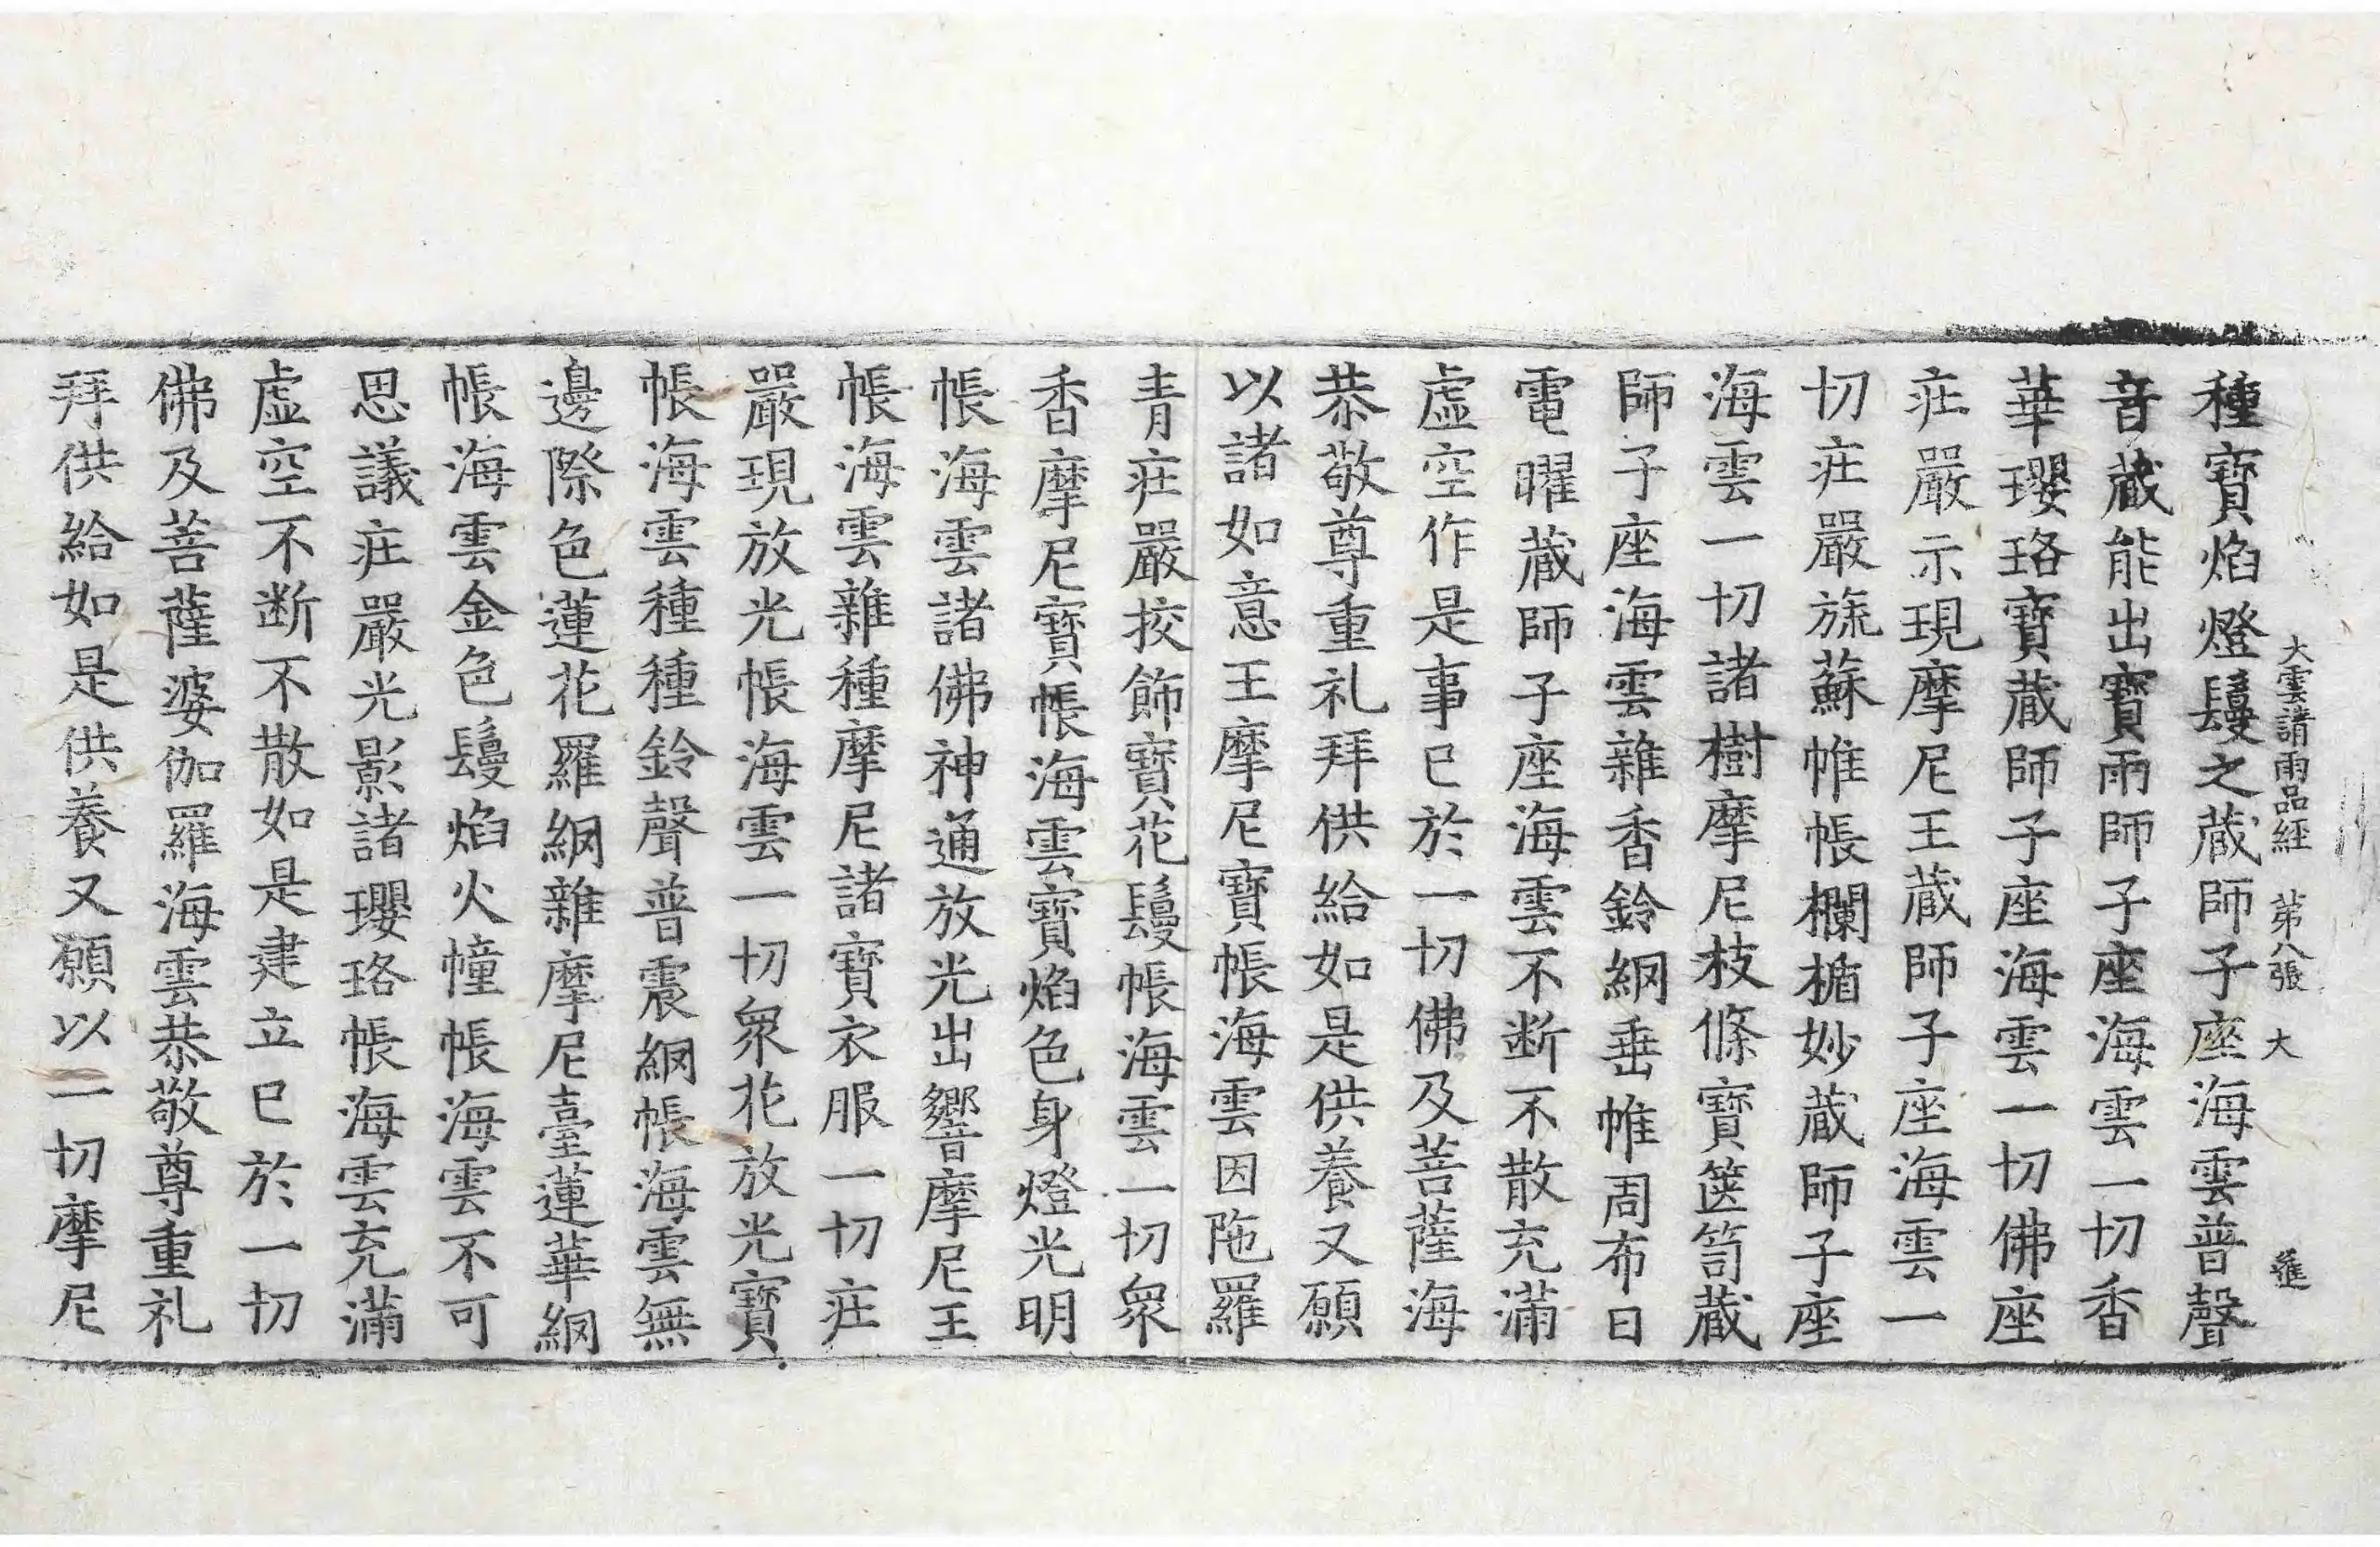 大雲請雨品経 第八張 大 進
種寶焰燈鬘之蔵師子座海雲普聲
音蔵能出寶雨師子座海雲一切香
華瓔珞寶蔵師子座海雲一切佛座
荘嚴示現摩尼王蔵師子座海雲一
切荘嚴旒蘇帷帳欄楯妙蔵師子座
海雲一切諸樹摩尼枝條寶篋笥蔵
師子座海雲雜香鈴網垂帷周布日
電曜蔵師子座海雲不断不散充滿
虛空作是事已於一切佛及菩薩海
恭敬尊重礼拜供給如是供養又願
以諸如意王摩尼寶帳海雲因陁羅
青荘嚴挍飾寶花鬘帳海雲一切衆
香摩尼寶帳海雲寶焰色身燈光明
帳海雲諸佛神通放光出響摩尼王
帳海雲雜種摩尼諸寶衣服一切荘
嚴現放光帳海雲一切衆花放光寶
帳海雲種種鈴聲普震網帳海雲無
邊際色蓮花羅網雜摩尼臺蓮華網
帳海雲金色鬘焰火幢帳海雲不可
思議荘嚴光影諸瓔珞帳海雲充滿
虛空不断不散如是建立已於一切
佛及菩薩婆伽羅海雲恭敬尊重礼
拜供給如是供養又願以一切摩尼